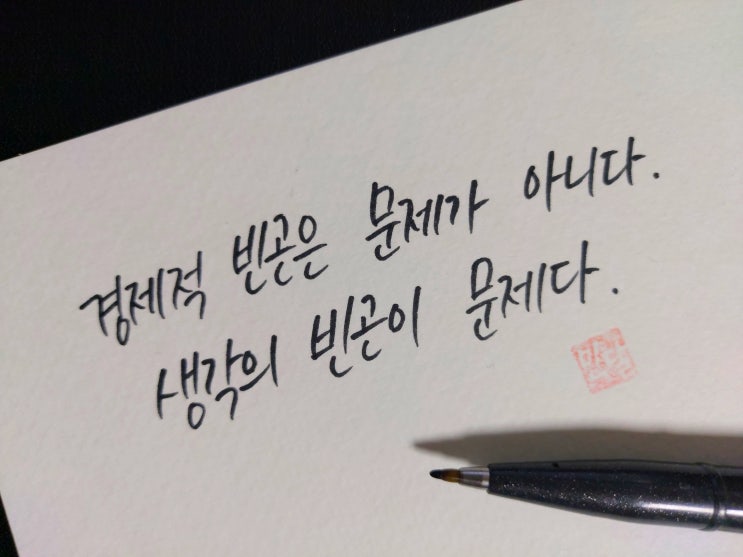 경제적 빈곤은 문제가 아니다.
생각의 빈곤이 문제다.